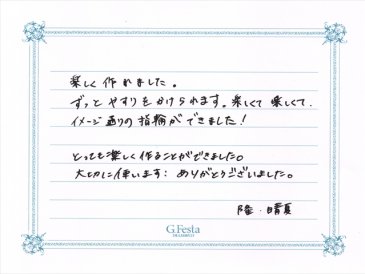 楽しく作れました。
ずっとやすりをかけられます。楽しくて楽しくて、
イメージ通りの指輪ができました!
とっても楽しく作ることができました。
大切に使います: ありがとうございました。
隆・晴夏
G.Festa